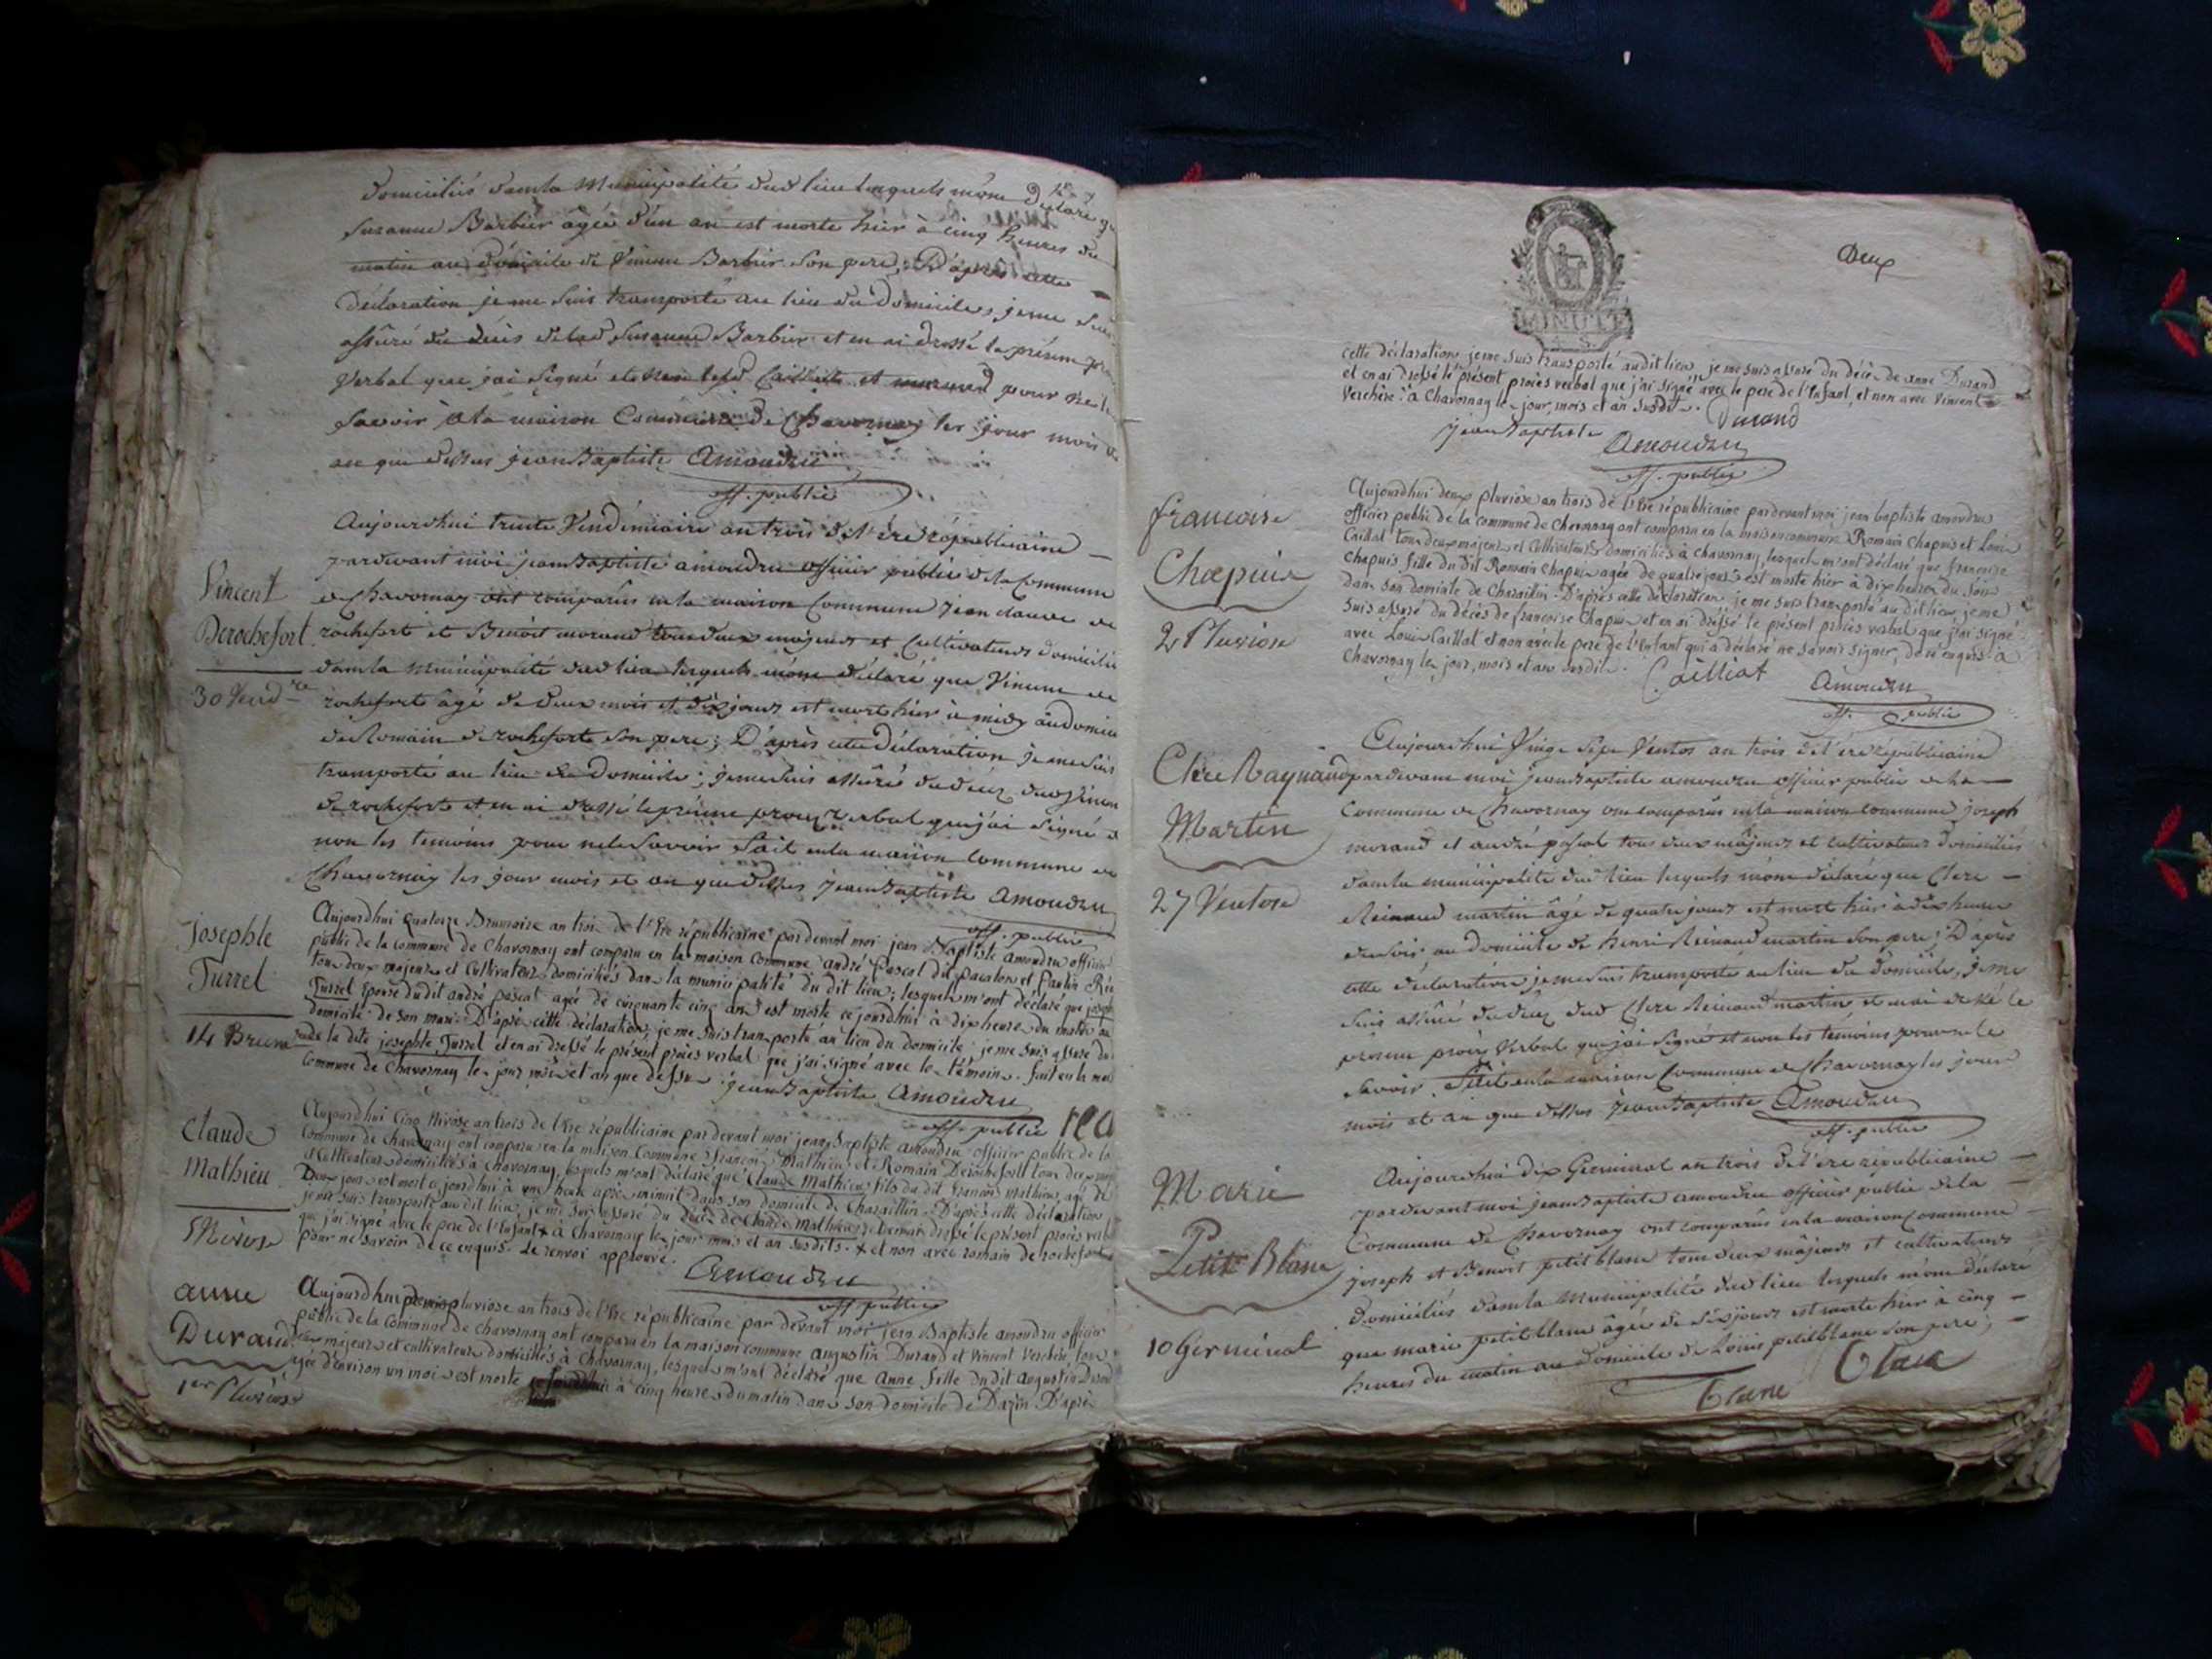 domiciliés dans la Municipalité dud lieu lesquels m'ont Déclaré
Susanne Barbier âgée d'un an est morte hier à cinq heures du
matin au domicile de Barbier son pere; D'après cette
Déclaration je me suis transporté au lieu du Domicile, je me suis
assuré du décès de lad Susanne Barbier et en ai dressé le présent
Verbal que j'ai signé et non lesd Caillat et morand pour ne le
savoir à la maison Commune de Chavornay les jour mois
an que dessus jean Baptiste Amoudru
off. public
Aujourdhui trente Vendémiaire an trois de l'ère républicaine
pardevant moi jean Baptiste amoudru officier public de la Commune
de Chavornay ont comparus en la maison Commune jean claude de
rochefort et Benoit morand tous deux majeurs et Cultivateurs domiciliés
Vincent
Derochefort
30 Vend.re
dans la Municipalité dud lieu lesquels m'ont déclaré que Vincent de
rochefort âgé de deux mois et dix jours est mort hier à midy au domicile
de Romain de rochefort son pere; D'après cette Déclaration je me suis
transporté au lieu du domicile; je me suis assuré du décès dud Vincent
de rochefort et en ai dressé le présent procez Verbal que j'ai signé et
non les temoins pour ne le savoir fait en la maison Commune de
Chavornay les jour mois et an que dessus jean Baptiste Amoudru
off. public
Josephte
Turrel
14 Brum
Aujourdhui quatorze Brumaire an trois de l'Ere républicaine pardevant moi jean Baptiste amoudru officier
public de la Commune de Chavornay ont comparu en la maison Commune andré Pascal dit pacalon et
tous deux majeurs et Cultivateurs domiciliés dans la municipalité du dit lieu; lesquels m'ont déclaré que josephte
Turrel Epouse du dit andré pascal agée de cinquante cinq ans est morte ce jourdhui à dix heures du matin au
domicile de son mari. D'après cette déclaration, je me suis transporté au lieu du domicile; je me suis assuré du
de la dite josephte Turrel et en ai dressé le présent procès verbal que j'ai signé avec les témoins. fait en la maison
Commune de Chavornay les jour mois et an que dessus. jean Baptiste Amoudru
off. public
Claude
Mathieu
5 Nivose
Aujourdhui Cinq Nivose an trois de l'Ere républicaine pardevant moi jean Baptiste amoudru officier public de la
Commune de Chavornay ont comparu en la maison Commune François Mathieu et Romain Derochefort tous deux
et Cultivateurs domiciliés à Chavornay, lesquels m'ont déclaré que Claude Mathieu fils du dit François Mathieu, agé de
Deux jours est mort ce jourdhui à une heure après minuit dans son domicile de Charaillin. D'après cette déclaration
je me suis transporté au dit lieu, je me suis assuré du décès de Claude Mathieu et en ai dressé le présent procès verbal
que j'ai signé avec le pere de l'Enfant x à Chavornay les jour mois et an susdits. x et non avec romain de rochefort
pour ne savoir de ce enquis. Le renvoi approuvé.
Amoudru
off. public
anne
Durand
1er Pluviose
Aujourdhui premier pluviose an trois de l'Ere républicaine par devant moi jean Baptiste amoudru officier
public de la Commune de Chavornay ont comparu en la maison commune augustin Durand et Vincent Verchère, tous
deux majeurs et cultivateurs domiciliés à Chavornay, lesquels m'ont déclaré que Anne fille du dit augustin Durand
agée d'environ un mois est morte à cinq heures du matin dans son domicile de Dazin. D'après
Deux
MINUTE
cette déclaration, je me suis transporté au dit lieu, je me suis assuré du décès de anne Durand
et en ai dressé le présent procès verbal que j'ai signé avec le pere de l'Enfant, et non avec Vincent
Verchère. à Chavornay les jour, mois et an susdits. Durand
jean Baptiste
Amoudru
off. public
francoise
Chapuis
2 Pluviose
Aujourdhui deux pluviôse an trois de l'Ere républicaine pardevant moi jean baptiste amoudru
officier public de la commune de Chavornay ont comparu en la maison commune Romain Chapuis et Louis
Caillat tous deux majeurs et Cultivateurs domiciliés à chavornay, lesquels m'ont déclaré que françoise
Chapuis fille du dit Romain Chapuis agée de quatre jours est morte hier à dix heures du soir
dans son domicile de Charaillin. D'après cette déclaration je me suis transporté au dit lieu, je me
suis assuré du décès de francoise Chapuis et en ai dressé le présent procès verbal que j'ai signé
avec Louis Caillat et non avec le pere de l'Enfant qui a déclaré ne savoir signer, de ce enquis. à
Chavornay les jour, mois et an susdits. Cailliat
Amoudru
off. public
Clere Raynaud
Martin
27 Ventose
Aujourdhui Vingt Sept Ventos an trois de l'ère républicaine
pardevant moi jean Baptiste amoudru officier public de la
Commune de Chavornay ont comparus en la maison commune joseph
morand et andré pascal tous deux majeurs et cultivateurs domiciliés
dans la municipalité dud lieu lesquels m'ont déclaré que Clere
Reinaud martin âgé de quatre jours est mort hier à dix heures
du soir au domicile de henri Reinaud martin son pere; D'après
cette déclaration je me suis transporté au lieu du domicile, je me
suis assuré du décez dud Clere Reinaud martin et en ai dressé le
présent procès Verbal que j'ai signé et non les témoins pour ne le
savoir. fait en la maison Commune de Chavornay les jour
mois et an que dessus jean Baptiste Amoudru
off. public
Marie
Petit Blanc
10 Germinal
Aujourdhui dix Germinal an trois de l'ère républicaine
pardevant moi jean Baptiste amoudru officier public de la
Commune de Chavornay ont comparus en la maison Commune
joseph et Benoit petit blanc tous deux majeurs et cultivateurs
domiciliés dans la Municipalité dud lieu lesquels m'ont déclaré
que marie petit blanc âgée de jours est morte hier à cinq
heures du matin au domicile de Louis petit blanc son pere;